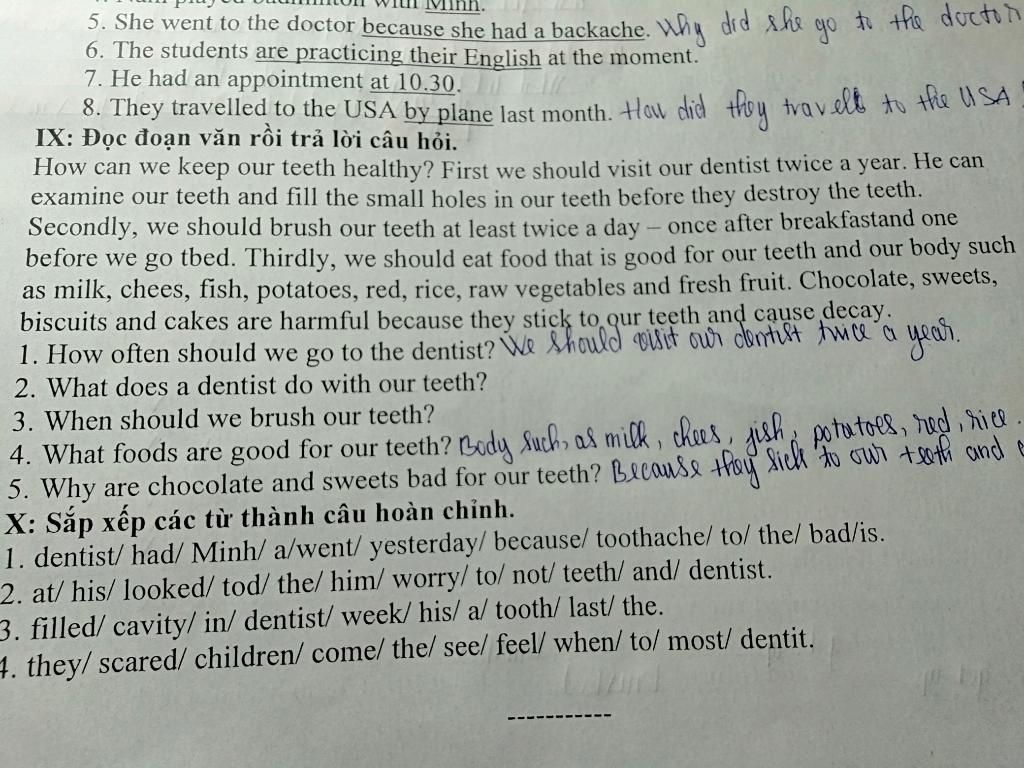 Minh.
5. She went to the doctor because she had a backache. Why did she go to the doctor
6. The students are practicing their English at the moment.
7. He had an appointment at 10.30.
8. They travelled to the USA by plane last month. How did they travell to the USA
IX: Đọc đoạn văn rồi trả lời câu hỏi.
How can we keep our teeth healthy? First we should visit our dentist twice a year. He can
examine our teeth and fill the small holes in our teeth before they destroy the teeth.
Secondly, we should brush our teeth at least twice a day – once after breakfastand one
before we go tbed. Thirdly, we should eat food that is good for our teeth and our body such
as milk, chees, fish, potatoes, red, rice, raw vegetables and fresh fruit. Chocolate, sweets,
biscuits and cakes are harmful because they stick to our teeth and cause decay.
1. How often should we go to the dentist? We should visit our dentist twice a year.
2. What does a dentist do with our teeth?
3. When should we brush our teeth?
4. What foods are good for our teeth? Body such, as milk, chees, fish, potatoes, red, rice.
5. Why are chocolate and sweets bad for our teeth? Because they sick to our teeth and
X: Sắp xếp các từ thành câu hoàn chỉnh.
1. dentist/ had/ Minh/ a/went/ yesterday/ because/ toothache/ to/ the/ bad/is.
2. at/ his/ looked/ tod/ the/ him/ worry/ to/ not/ teeth/ and/ dentist.
3. filled/ cavity/ in/ dentist/ week/ his/ a/ tooth/ last/ the.
4. they/ scared/ children/ come/ the/ see/ feel/ when/ to/ most/ dentit.
-----------